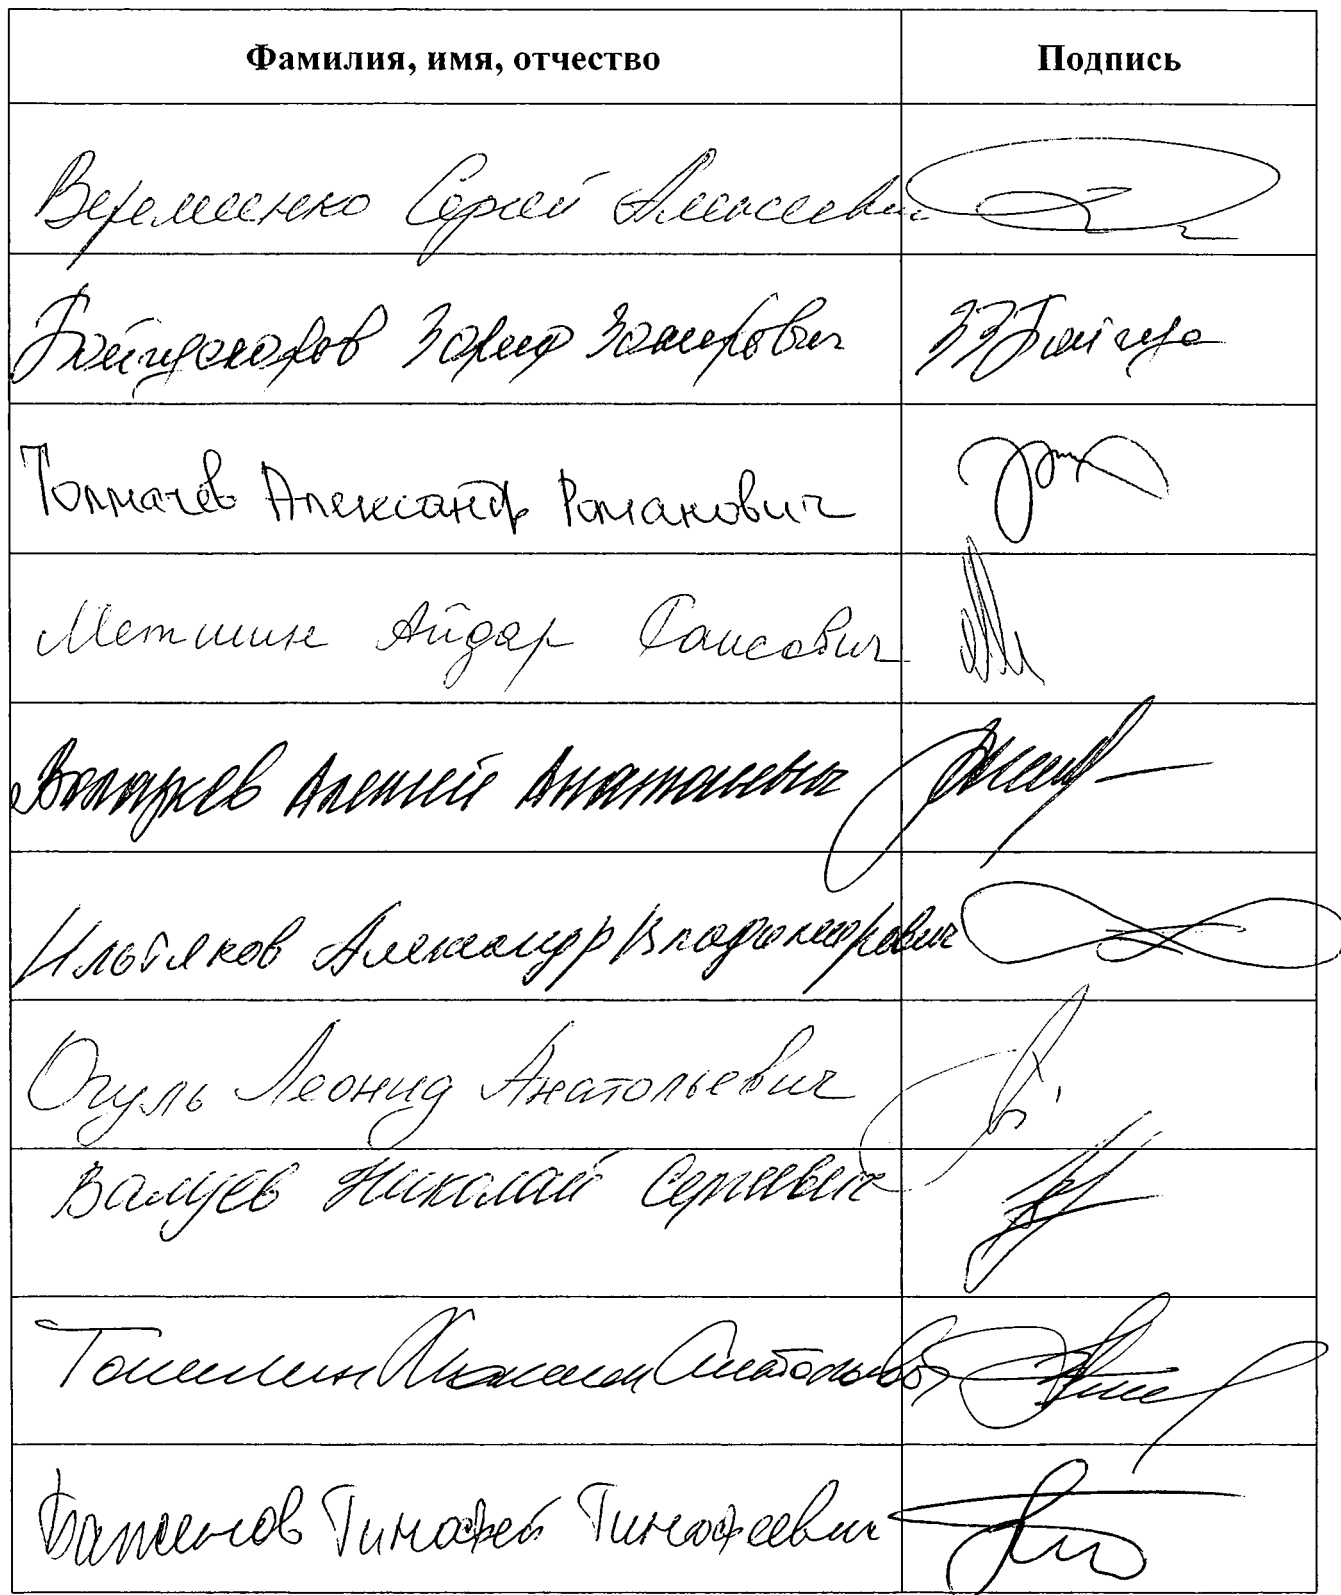 Фамилия, имя, отчество Подпись
Веремеенко Сергей Алексеевич
Байгускаров Зариф Закирович
Толмачев Александр Романович
Метшин Айдар Раисович
Алексей Анатольевич
Ильтяков Александр Владимирович
Огуль Леонид Анатольевич
Валуев Николай Сергеевич
Анатольевич
Баженов Тимофей Тимофеевич